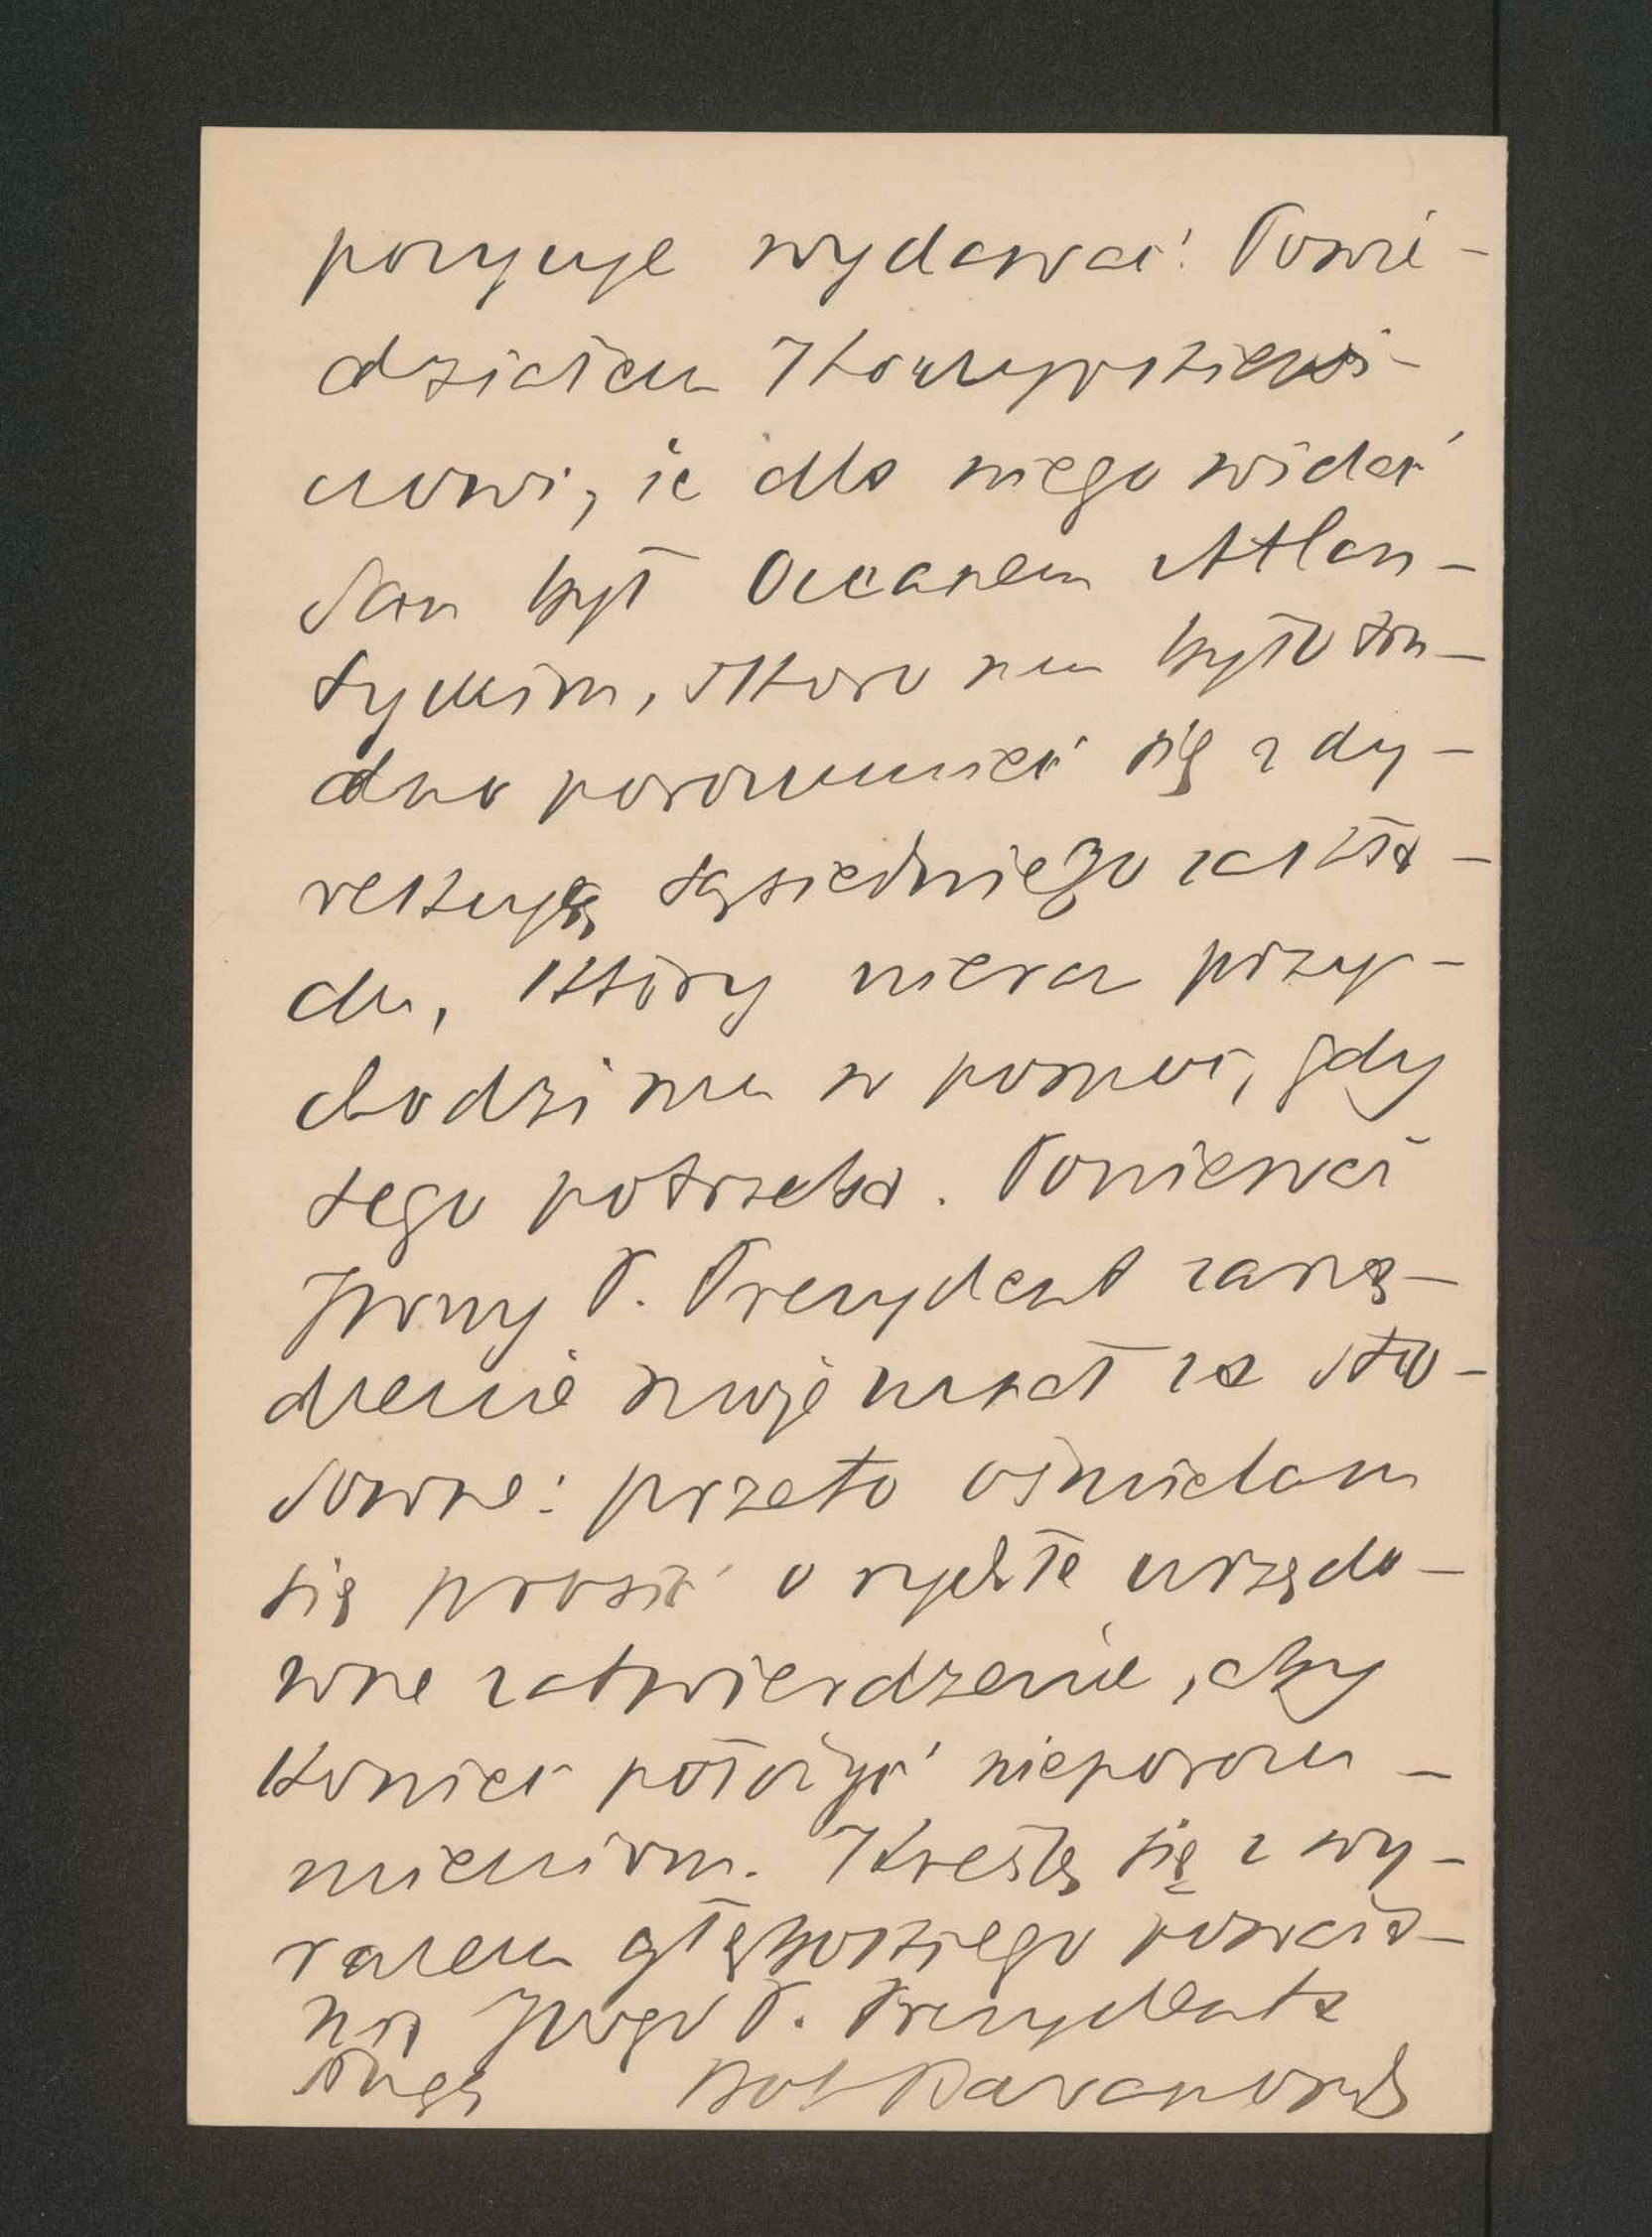 pozycye wydawać! Powie-
działem Korczyńskiemu-
nowi, że dla niego widać
San był Oceanem Atlan-
tyckim, skoro mu było tru-
dno porozumieć się z dy-
rekcyą sąsiedniego zakła-
du, który nieraz przy-
chodzi mu w pomoc, gdy
tego potrzeba. Ponieważ
JWny P. Prezydent zarzą-
dzenie moje uznał za sto-
sowne: przeto ośmielam
się prosić o rychłe urzędo-
wne zatwierdzenie, aby
koniec położyć nieporozu-
mieniom. Kreślę się z wy-
razem głębokiego poważa-
nia JWgo P. Prezydenta
sługą Bol Baranowski